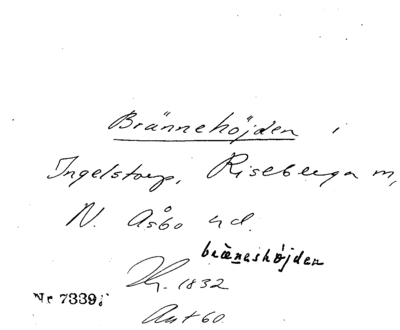 Brännehöjden i
Ingelstorp, Riseberga m,
N. Åsbo hd.
bräneshöjden
1832
Nr 7339;
Akt 60.